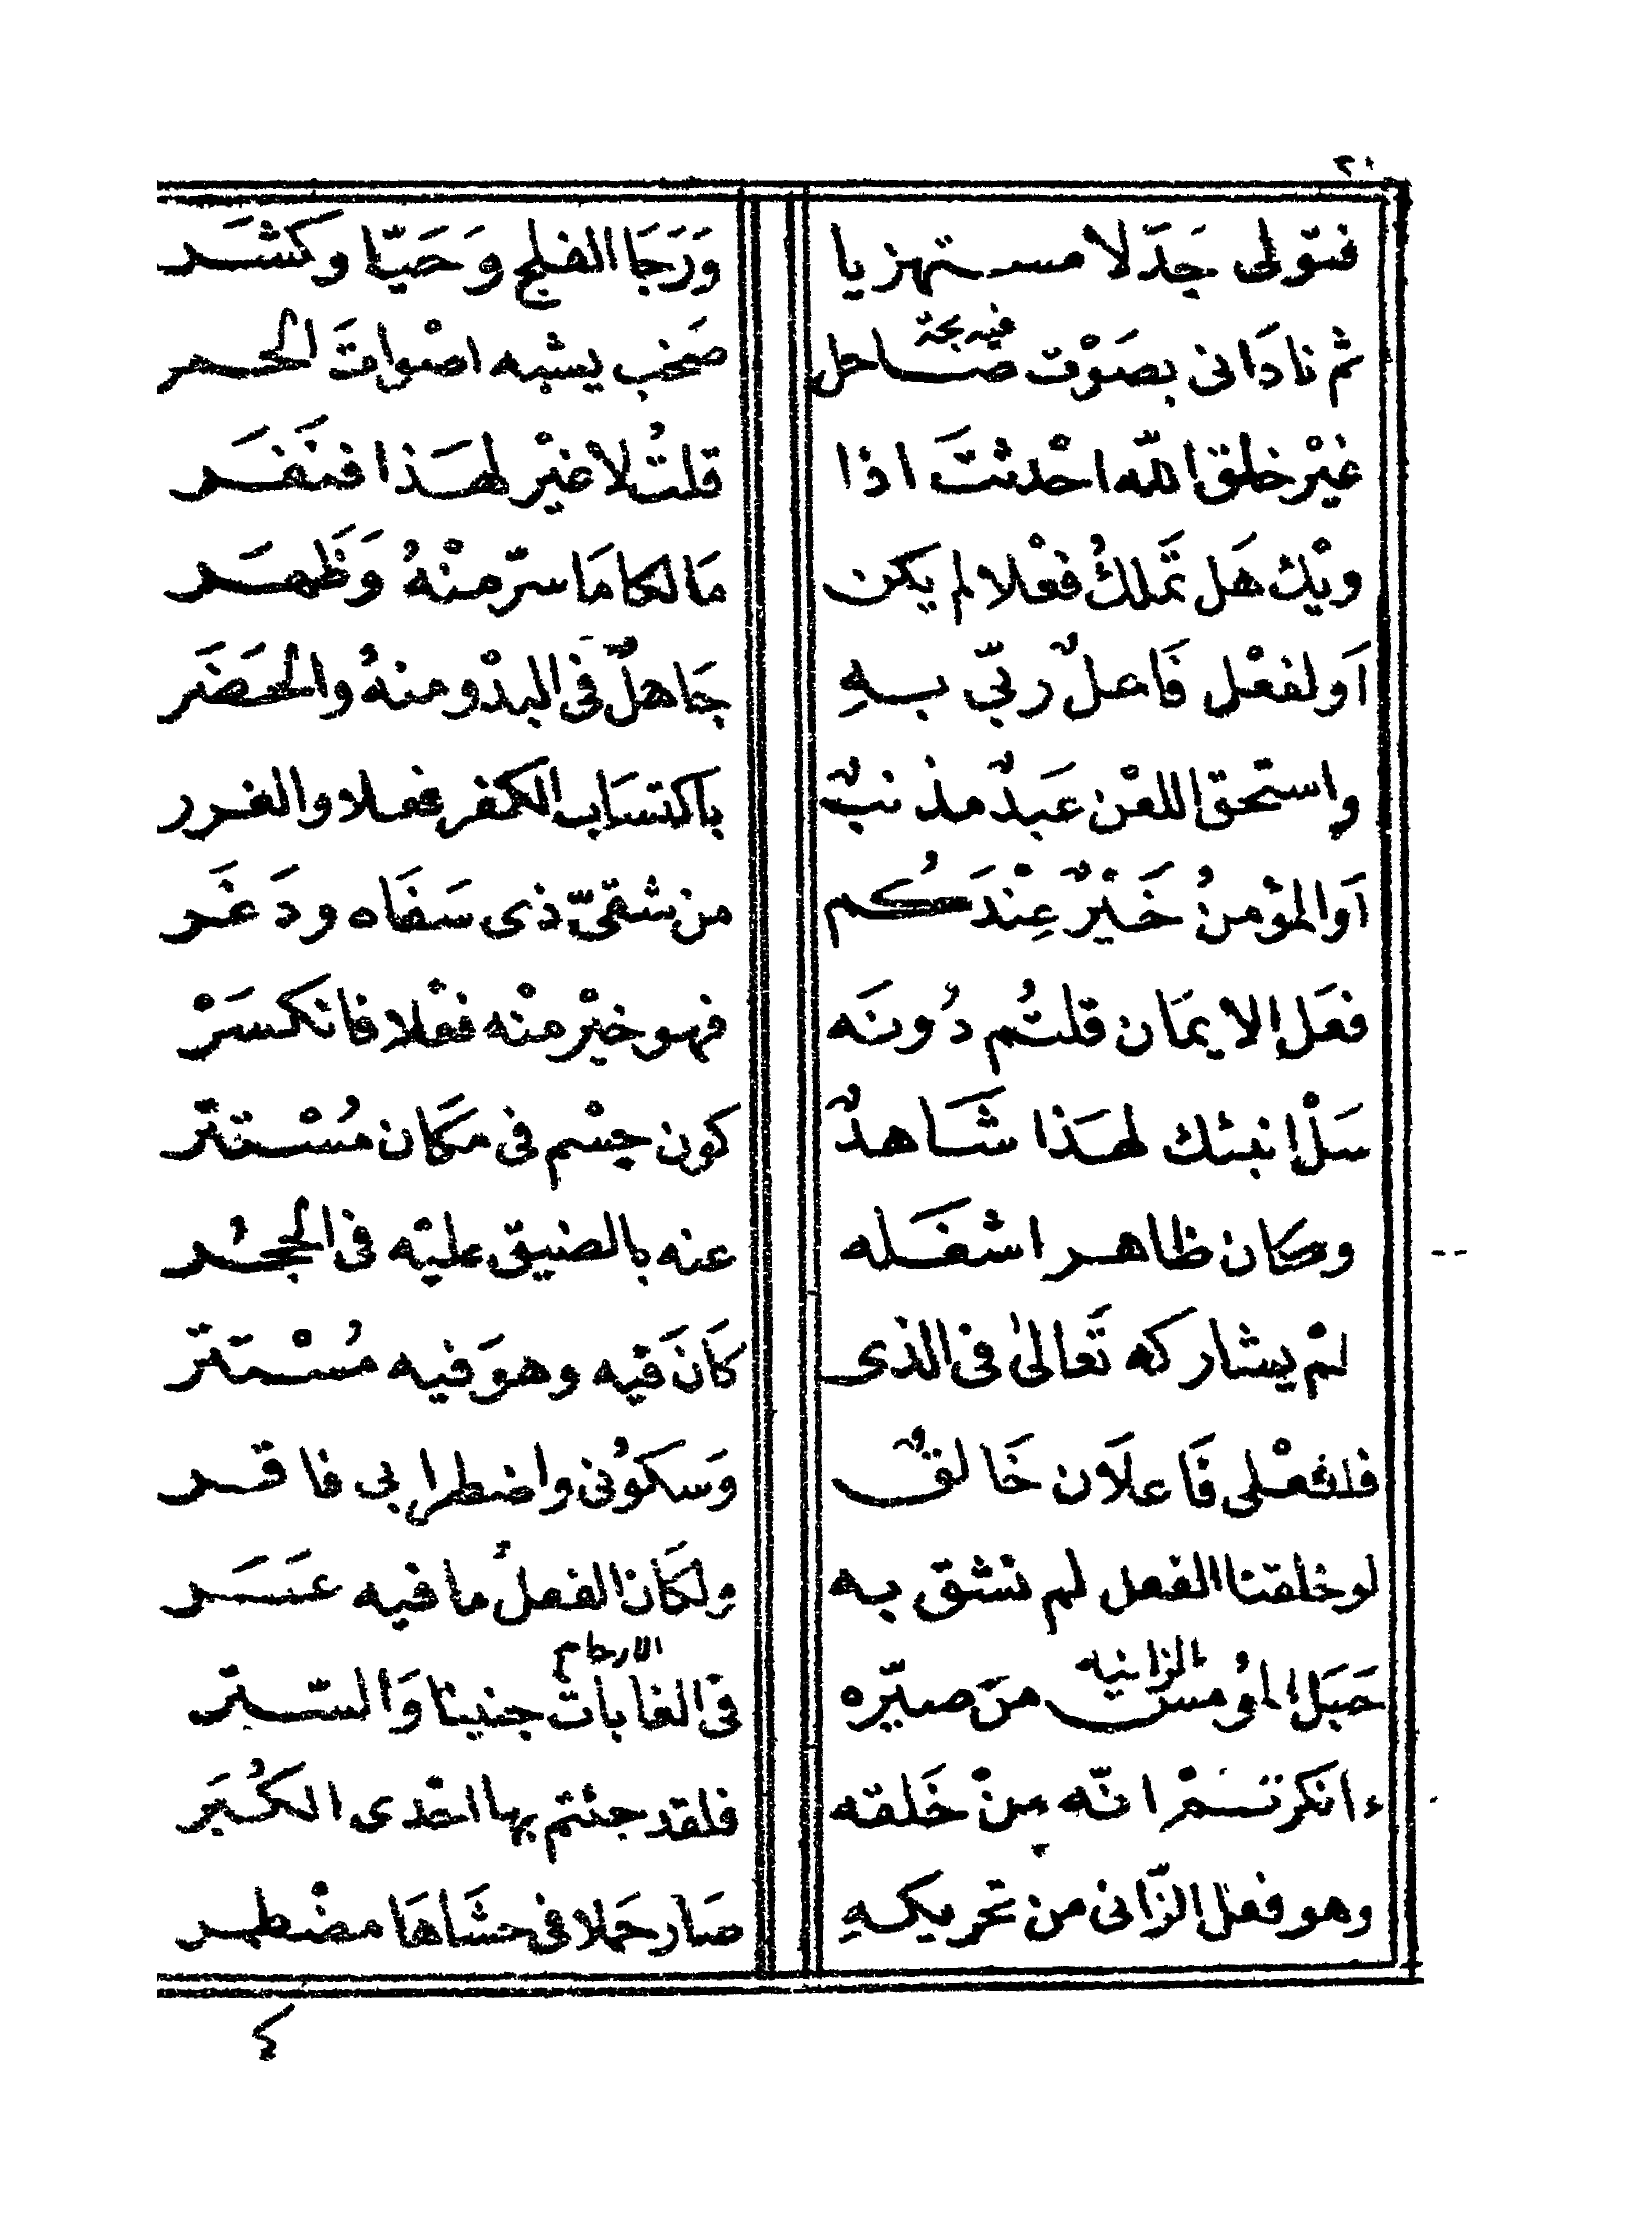 ٢٠
فتولى جَدلا مستهزيا وَرَجَا الفلج وَحَيّا وكشَر
فيه بحة
ثم نادَانى بصَوْت صَاحل صَخب يشبه اصْواتَ الحمر
غيْر خلق الله احْدثتَ اذا قلتُ لا غيْر لهَذا فنَفَر
ويْك هَل تَملكُ فعْلا لم يكن مَا لكا مَا سرّ منْهُ وَظَهَر
اَو لفعْل فَاعلٌ ربّى بهِ جَاهلٌ فى البدْو منهُ والحَضَر
واستحق اللعْن عَبدٌ مذنبٌ باكتسَاب الكفر فعلا والغرر
اَو المؤمنُ خَيْرٌ عِنْدَكُم من شقىّ ذى سَفَاه ودَغَر
فعَل الايمَان قلتُم دُونَه فهو خيْر منْه فعْلا فانكسَرْ
سَلْ انبئك لهَذا شَاهدٌ كون جسْم فى مكَان مُسْتتر
وكان ظاهر اشغَله عنه بالضيق عليْه فى الحجُر
لمْ يشاركه تَعالىٰ فى الذى كَانَ فيْه وهوَ فيه مُسْتَتر
فلفعْلى فَاعلَان خَالقٌ وَسكوُنى واضطرابى فاقدر
لو خلقنا الفعل لم نشق به ولكَان الفعلُ ما فيه عَسَر
الزانيه الارحام
حبَل المُومس منَ صيّره فى الغابات جنينا وَالستّر
ءانكرتمْ انّه منْ خَلقه فلقد جئتم بها احْدى الكُبَر
وهو فعل الزّانى من تحريكهِ صَار حَملا فى حشَاهَا مضْطر